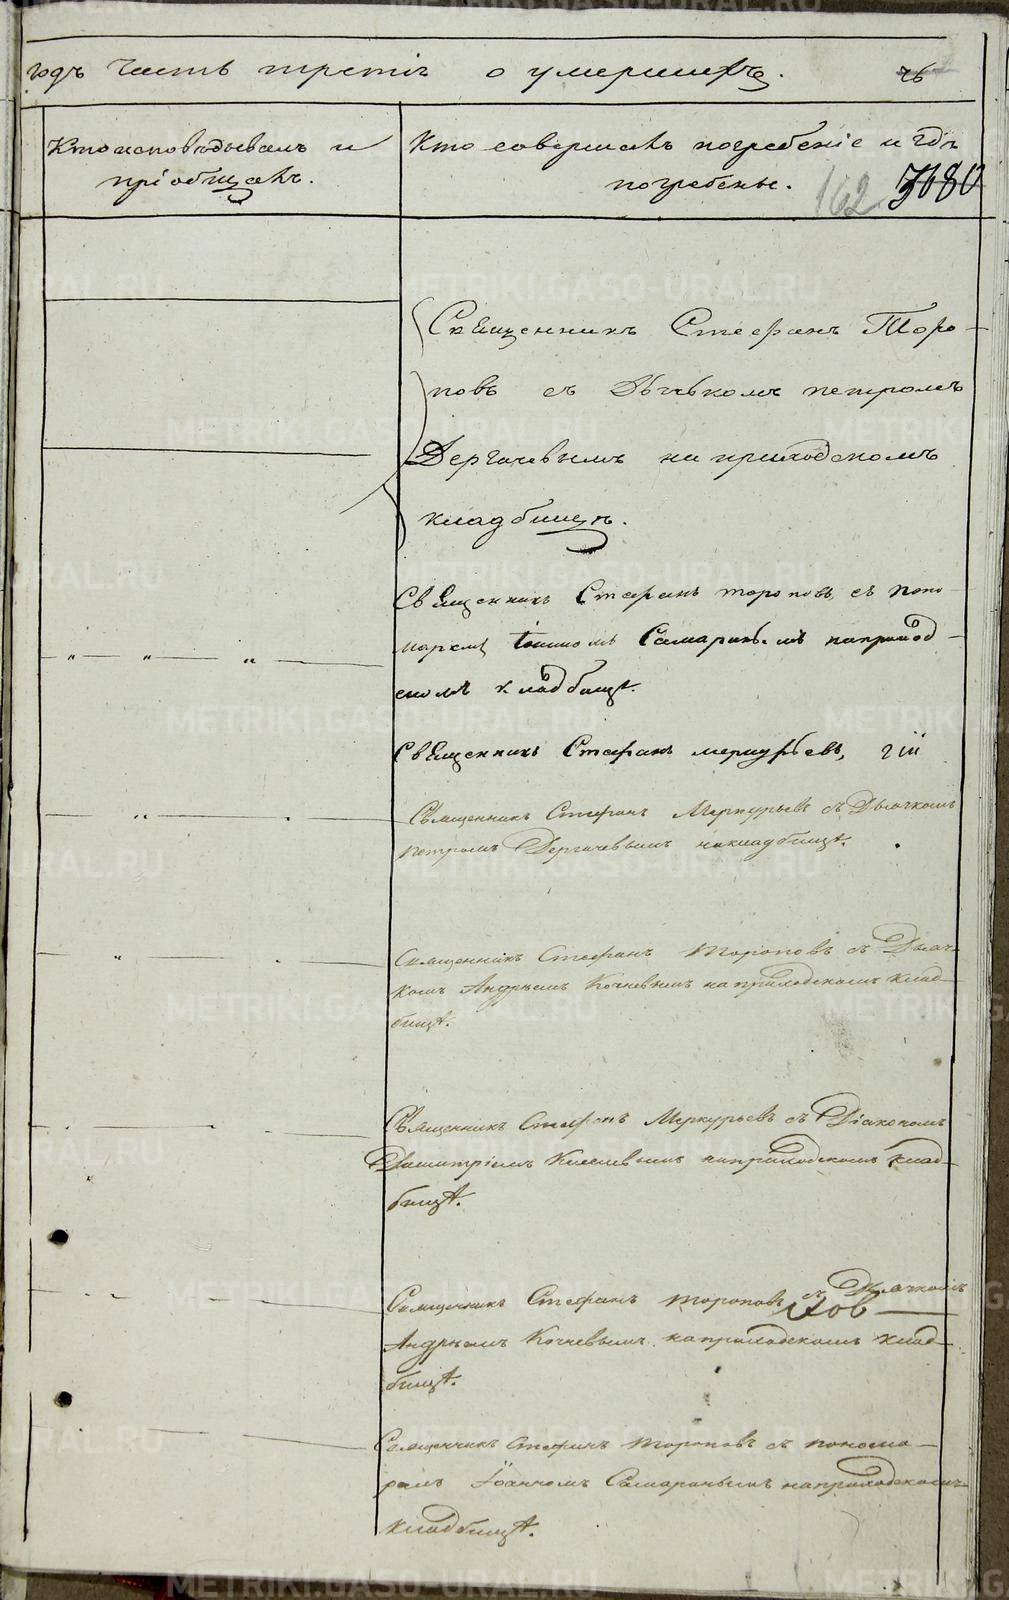 годъ часть третія о умершихъ. 76
Кто исповѣдывалъ и
пріобщалъ.
Кто совершалъ погребеніе и гдѣ
погребены.
162 3080
Священникъ Стефанъ Торо-
повъ съ Дьячкомъ петромъ
Дергачевымъ на приходскомъ
кладбищѣ.
Священникъ Стефанъ тороповъ съ поно-
маремъ Іоанномъ Самаринымъ на приход-
скомъ кладбищѣ.
Священникъ Стефанъ меркурьевъ,
Священникъ Стефанъ Меркурьевъ съ Дьячкомъ
петромъ Дергачевымъ на кладбищѣ.
Священникъ Стефанъ тороповъ съ Дьяч-
комъ Андрѣемъ Кочневымъ на приходскомъ клад-
бищѣ.
Священникъ Стефанъ Меркурьевъ съ Діакономъ
Димитріемъ на приходскомъ клад-
бищѣ.
Священникъ Стефанъ тороповъ съ Дьячкомъ
Андрѣемъ Кочневымъ на приходскомъ клад-
бищѣ.
Священникъ Стефанъ тороповъ съ понома-
ремъ Іоанномъ Самаринымъ на приходскомъ
кладбищѣ.
METRIKI.GASO-URAL.RU